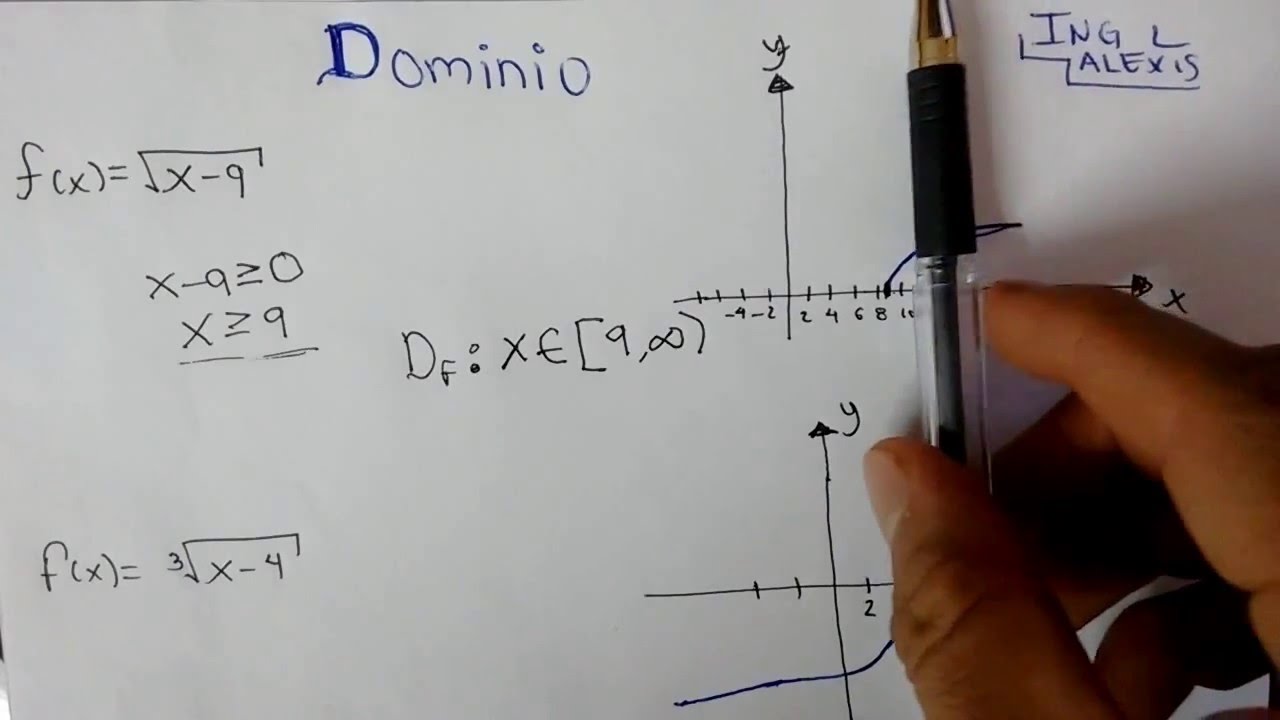 Dominio
ING L
ALEXIS
f(x)=√x-9
x-9≥0
x≥9
D_F: x∈[9,∞)
y
-4 -2 2 4 6 8
x
f(x)=∛x-4
y
2